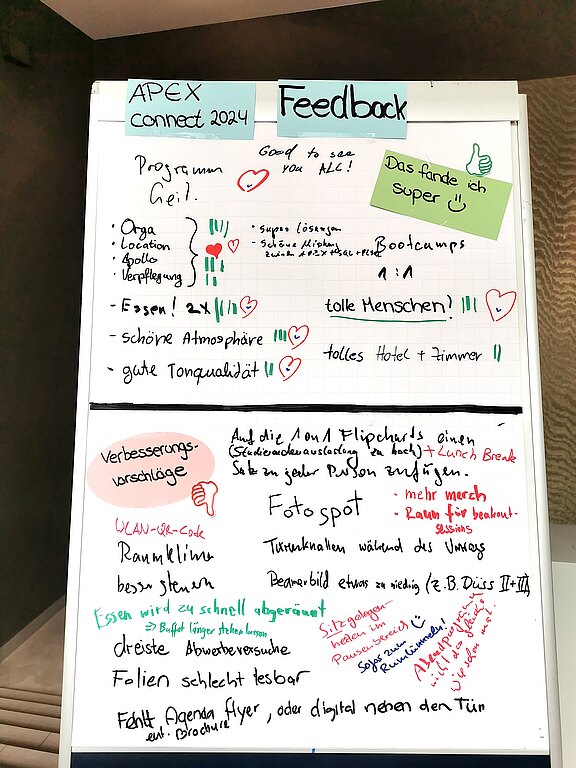 APEX
connect 2024
Feedback
Programm
Geil.
Good to see
you ALL!
Das fande ich
super
· Orga
· Location
· Apollo
· Verpflegung
· super Lösungen
· Schöne Mischung
zwischen APEX + SQL + PLSQL
Bootcamps
1:1
- Essen! 2x
tolle Menschen!
- schöne Atmosphäre
tolles Hotel + Zimmer
- gute Tonqualität
Verbesserungs-
vorschläge
Auf die 1on1 Flipcharts einen
(Studierendenauslastung zu hoch) + Lunch Break
Satz zu jeder Person zufügen.
Fotospot
· mehr merch
· Raum für breakout-
sessions
WLAN-QR-Code
Raumklima
besser steuern
Türenknallen während des Vortrags
Beamerbild etwas zu niedrig (z.B. Düss II+III)
Essen wird zu schnell abgeräumt
=> Buffet länger stehen lassen
Sitzgelegen-
heiten im
Pausenbereich
Sofas zum
Rumlümmeln!
Abendprogramm
nicht das gleiche
wie
dreiste Abwerbeversuche
Folien schlecht lesbar
Fehlt Agenda flyer, oder digital neben den Tür
evt. Brochure